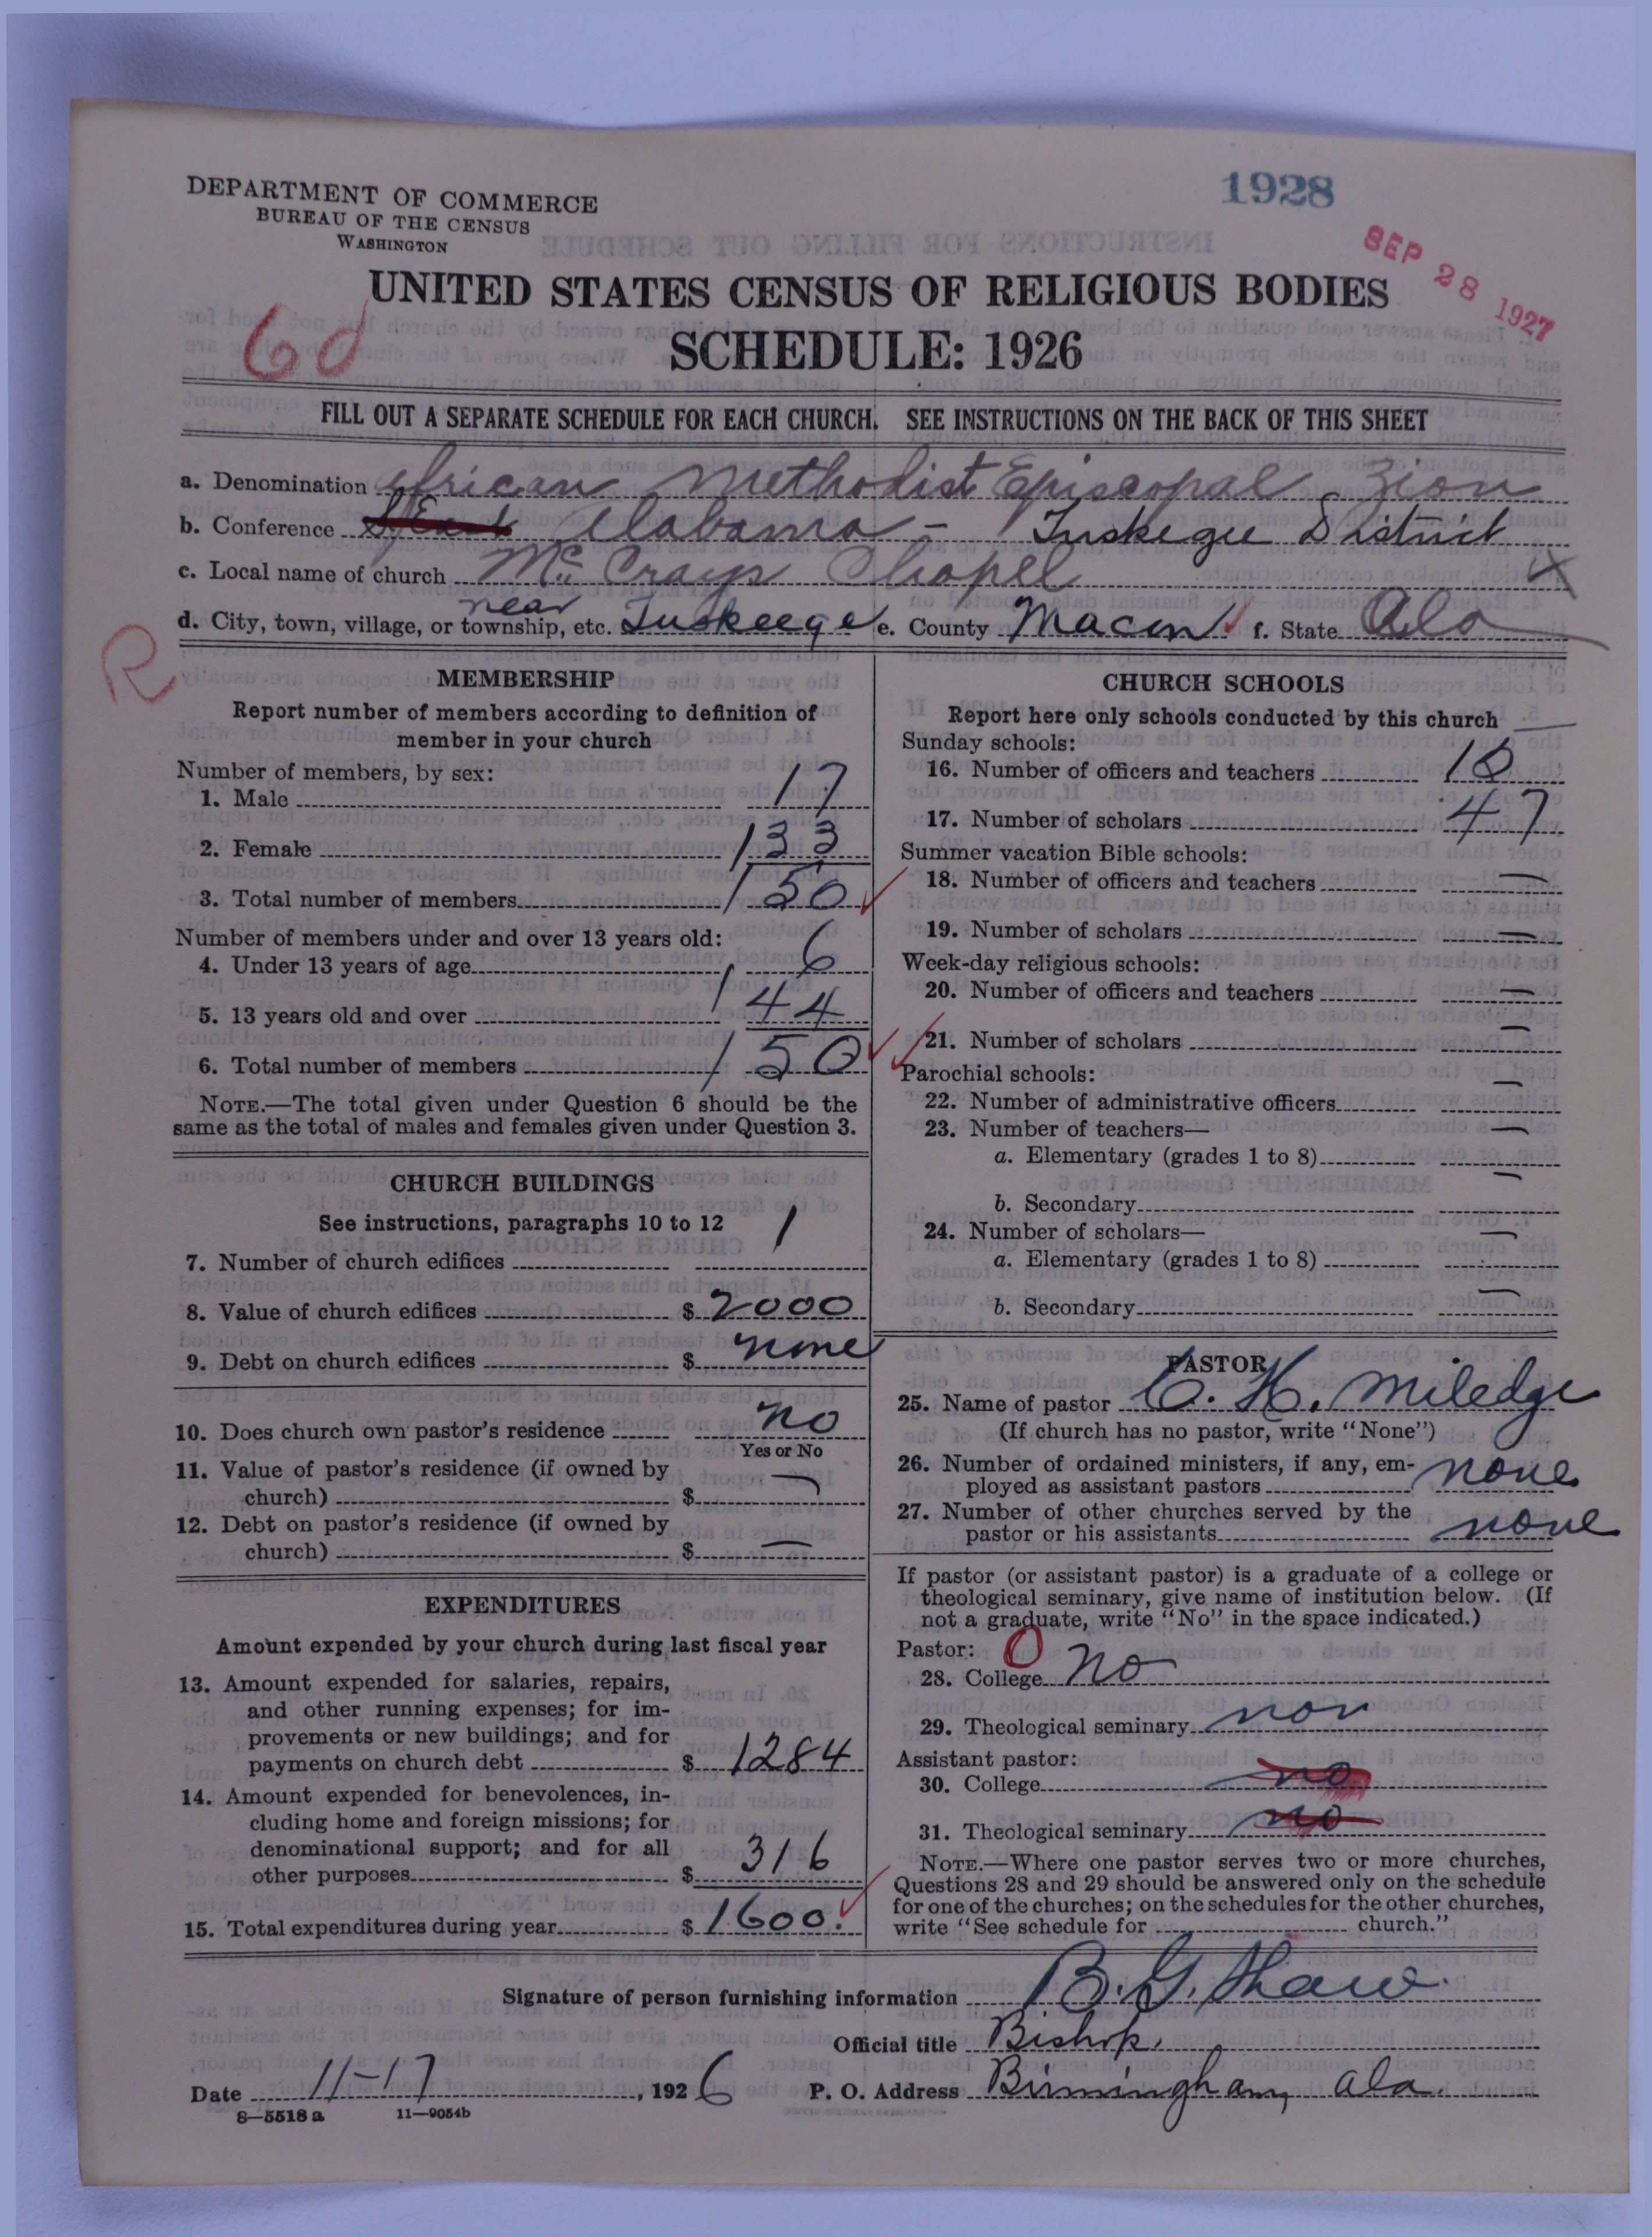 1928
SEP 28 1927
DEPARTMENT OF COMMERCE
BUREAU OF THE CENSUS
WASHINGTON
UNITED STATES CENSUS OF RELIGIOUS BODIES
60
SCHEDULE: 1926
FILL OUT A SEPARATE SCHEDULE FOR EACH CHURCH. SEE INSTRUCTIONS ON THE BACK OF THIS SHEET
a. Denomination African Methodist Episcopal Zion
b. Conference Alabama - Tuskegee District
c. Local name of church McCrays Chapel X
d. City, town, village, or township, etc. near Tuskeege e. County Macon f. State Ala
R
MEMBERSHIP
Report number of members according to definition of
member in your church
Number of members, by sex:
1. Male 17
2. Female 133
3. Total number of members 150
Number of members under and over 13 years old:
4. Under 13 years of age 6
5. 13 years old and over 144
6. Total number of members 150
NOTE.—The total given under Question 6 should be the
same as the total of males and females given under Question 3.
CHURCH BUILDINGS
See instructions, paragraphs 10 to 12
7. Number of church edifices 1
8. Value of church edifices $ 2000
9. Debt on church edifices $ none
10. Does church own pastor's residence no
Yes or No
11. Value of pastor's residence (if owned by
church) $ —
12. Debt on pastor's residence (if owned by
church) $ —
EXPENDITURES
Amount expended by your church during last fiscal year
13. Amount expended for salaries, repairs,
and other running expenses; for im-
provements or new buildings; and for
payments on church debt $ 1284
14. Amount expended for benevolences, in-
cluding home and foreign missions; for
denominational support; and for all
other purposes $ 316
15. Total expenditures during year $ 1600.
CHURCH SCHOOLS
Report here only schools conducted by this church
Sunday schools:
16. Number of officers and teachers
17. Number of scholars 47
Summer vacation Bible schools:
18. Number of officers and teachers —
19. Number of scholars —
Week-day religious schools:
20. Number of officers and teachers —
21. Number of scholars —
Parochial schools:
22. Number of administrative officers —
23. Number of teachers—
a. Elementary (grades 1 to 8) —
b. Secondary —
24. Number of scholars—
a. Elementary (grades 1 to 8) —
b. Secondary —
PASTOR
25. Name of pastor C. H. Miledge
(If church has no pastor, write "None")
26. Number of ordained ministers, if any, em-
ployed as assistant pastors none
27. Number of other churches served by the
pastor or his assistants none
If pastor (or assistant pastor) is a graduate of a college or
theological seminary, give name of institution below. (If
not a graduate, write "No" in the space indicated.)
Pastor: 0
28. College no
29. Theological seminary non
Assistant pastor:
30. College no
31. Theological seminary no
NOTE.—Where one pastor serves two or more churches,
Questions 28 and 29 should be answered only on the schedule
for one of the churches; on the schedules for the other churches,
write "See schedule for church."
Signature of person furnishing information B. G. Shaw.
Official title Bishop.
Date 11-17, 1926 P. O. Address Birmingham, Ala.
8—5518a 11—9054b